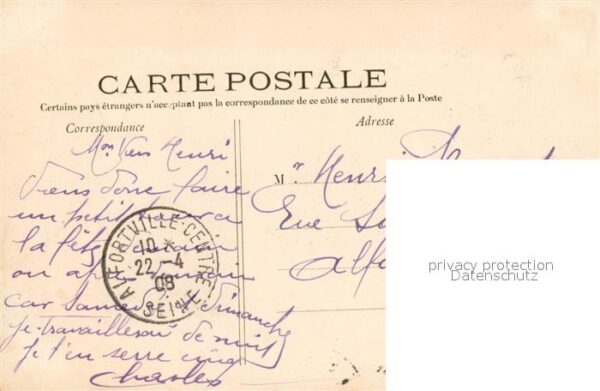 CARTE POSTALE
Certains pays étrangers n'acceptant pas la correspondance de ce côté se renseigner à la Poste
Correspondance
Adresse
Mon Vieux Henri
Viens donc faire
un petit tour a
la fête demain
ou après demain
car Samedi et dimanche
je travaillerai de nuit
Je t'en serre cinq
Charles
ALFORTVILLE-CENTRE
10 *
22 - 4
08
SEINE
Mr Henri
Rue
Alfo
privacy protection
Datenschutz